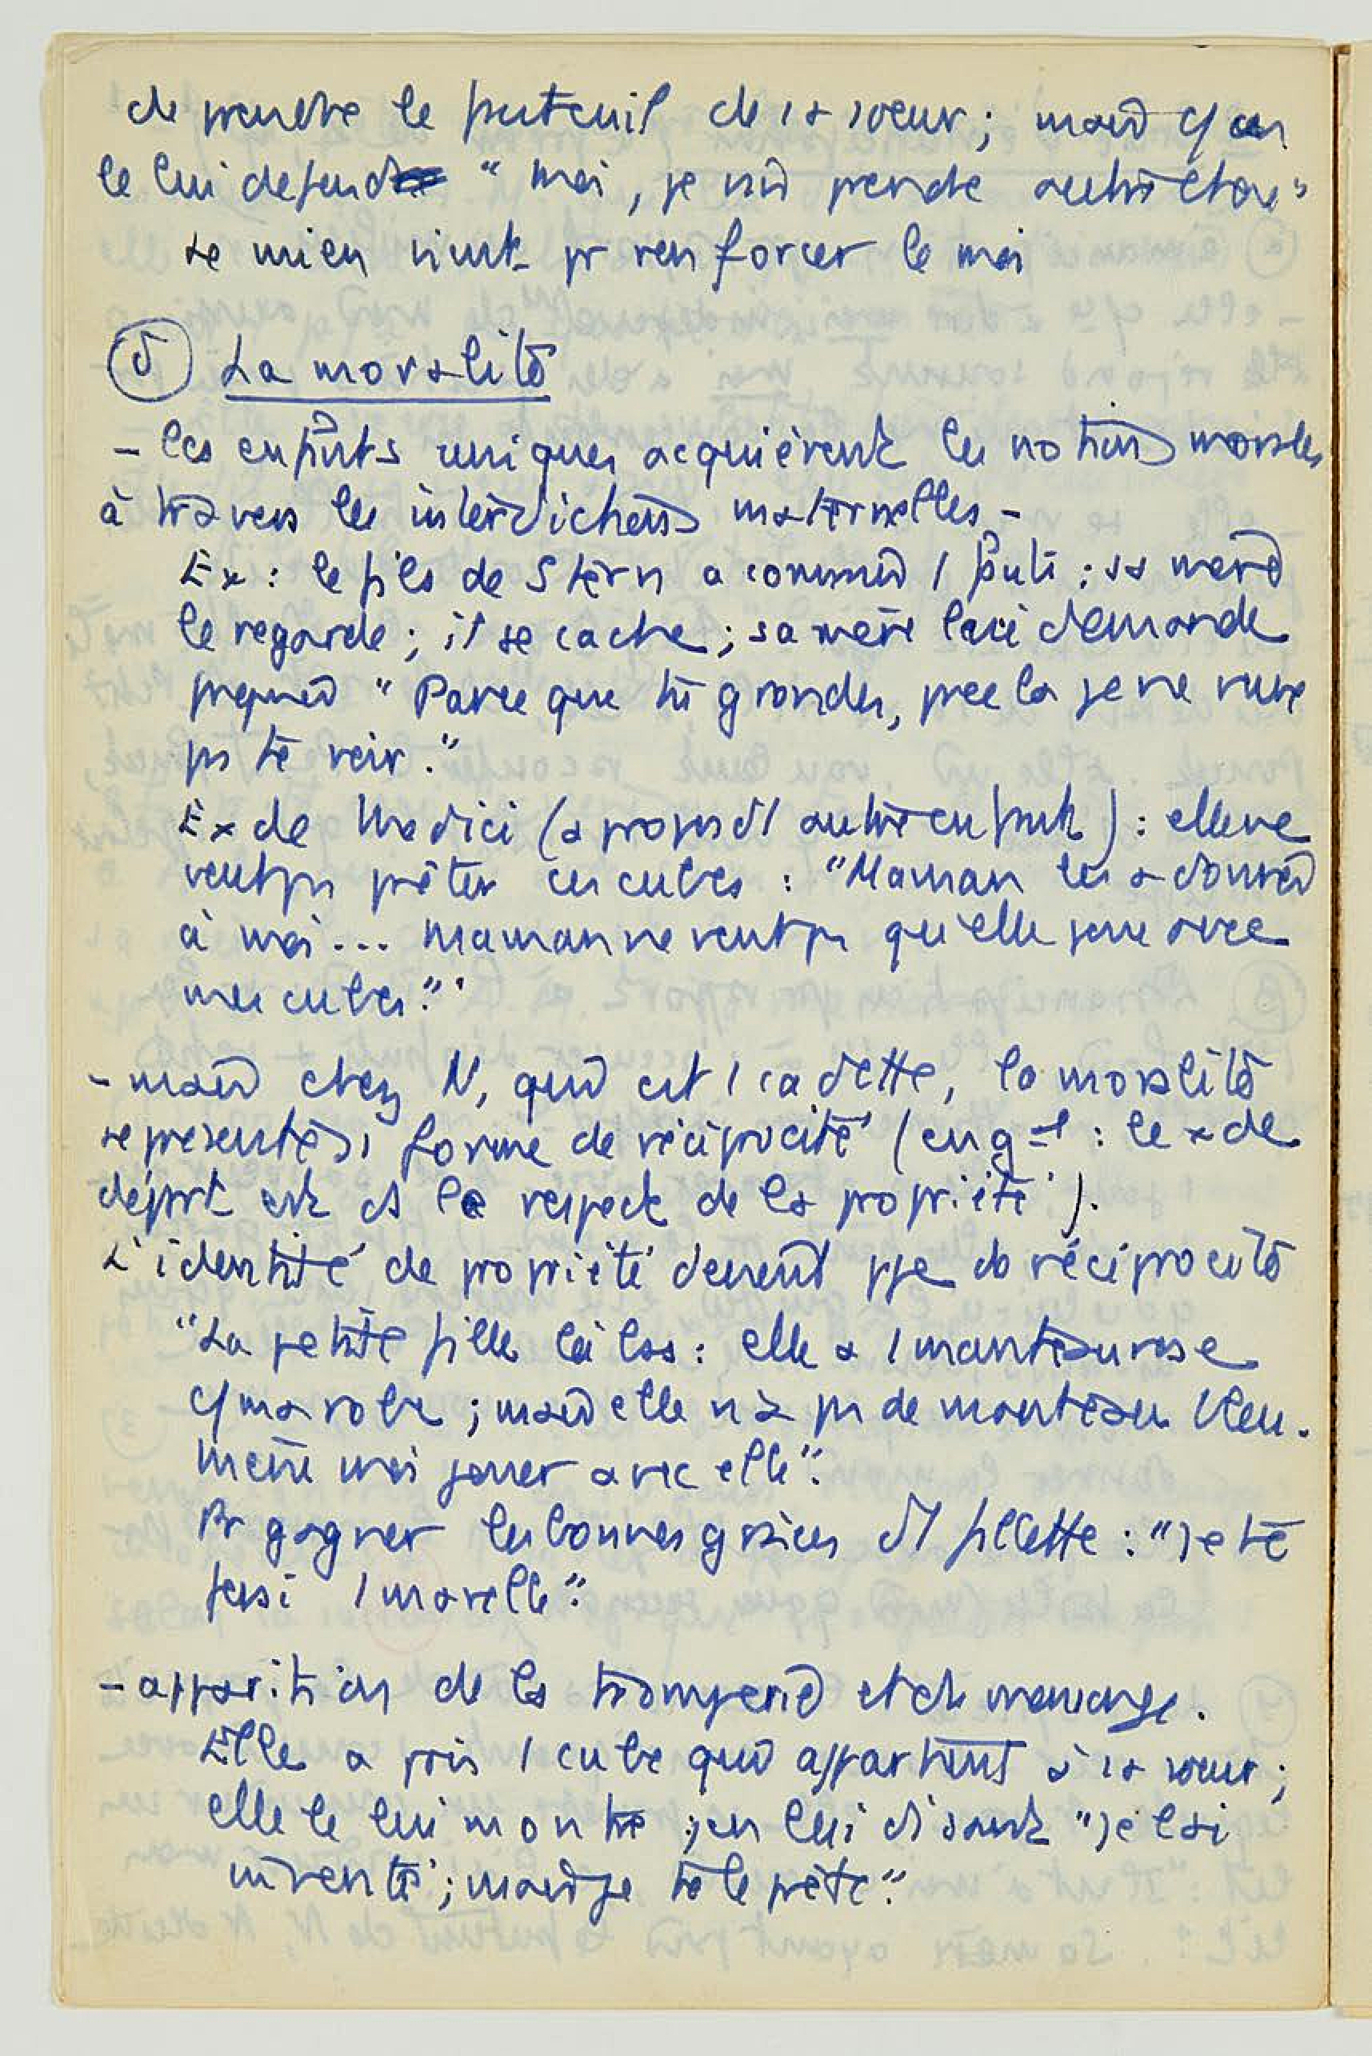 de prendre le fauteuil de sa soeur ; mais c/ on
le lui défend "moi, je vais prendre autre chose"
Le mien vient pr renforcer le moi
δ La moralité
- les enfants uniques acquièrent les notions morales
à travers les interdictions maternelles -
Ex : le fils de Stern a commis 1 faute ; sa mère
le regarde ; il se cache ; sa mère lui demande
prquoi "Parce que tu grondes, pr cela je ne veux
ps te voir."
Ex de Medici (à propos d'1 autre enfant) : elle ne
veut ps prêter ces cubes : "Maman les a donnés
à moi... maman ne veut ps qu'elle joue avec
mes cubes."
- mais chez N, qui est 1 cadette, la moralité
se présente ss forme de réciprocité (en g-al : le x de
départ est ds le respect de la propriété).
L'identité de propriété devient ppe de réciprocité
"La petite fille là bas : elle a 1 manteau rose
c/ ma robe ; mais elle n'a ps de manteau bleu.
Mène moi jouer avec elle".
Pr gagner les bonnes grâces d'1 fillette : "Je te
ferai 1 marelle".
- apparition de la tromperie et du mensonge.
Elle a pris 1 cube qui appartient à sa soeur ;
elle le lui montre ; en lui disant "Je l'ai
inventé ; mais je te le prête".